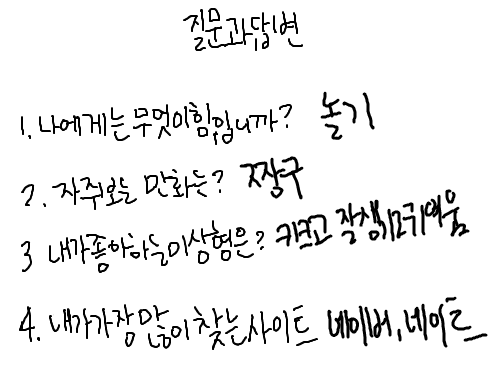 질문과답변
1. 나에게는 무엇이힘입니까? 놀기
2. 자주보는 만화는? 짱구
3 내가좋아하는이상형은? 키크고 잘생기고귀여움
4. 내가가장많이찾는사이트 네이버, 네이트